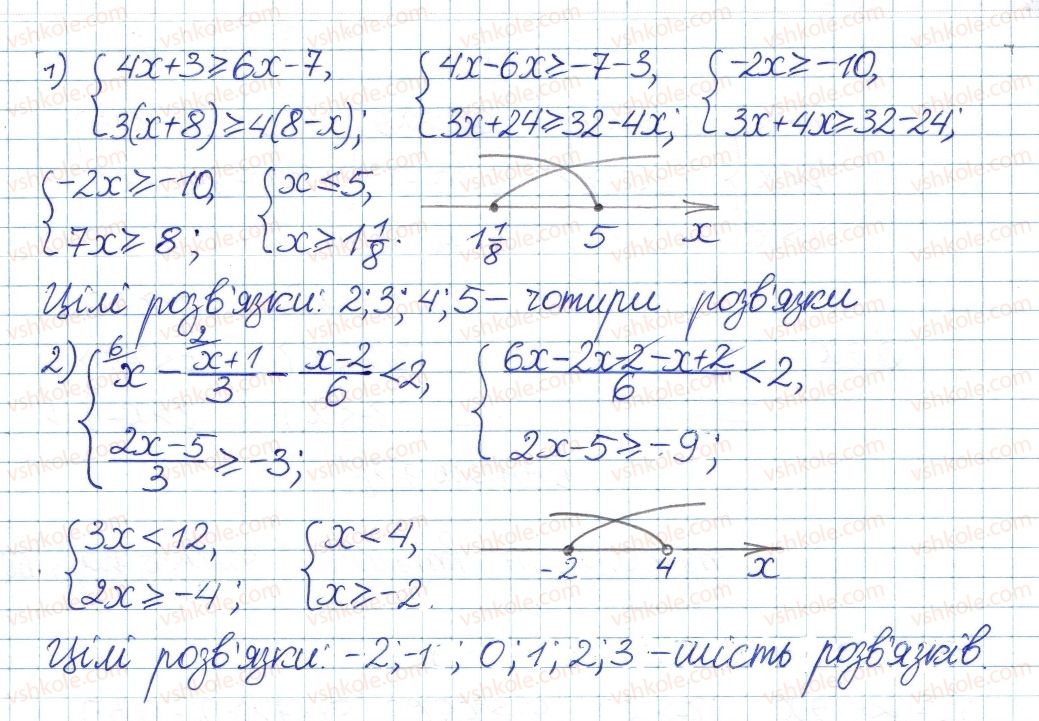 1) { 4x+3≥6x-7, 3(x+8)≥4(8-x); { 4x-6x≥-7-3, 3x+24≥32-4x; { -2x≥-10, 3x+4x≥32-24;
{ -2x≥-10, 7x≥8; { x≤5, x≥1 1/8. 1 1/8 5 x
Цілі розв'язки: 2; 3; 4; 5 – чотири розв'язки
2) { 6/ x - 2/ (x+1)/3 - (x-2)/6 < 2, (2x-5)/3 ≥ -3; { (6x-2x-2-x+2)/6 < 2, 2x-5≥-9;
{ 3x<12, 2x≥-4; { x<4, x≥-2. -2 4 x
Цілі розв'язки: -2; -1; 0; 1; 2; 3 – шість розв'язків.
vshkole.com